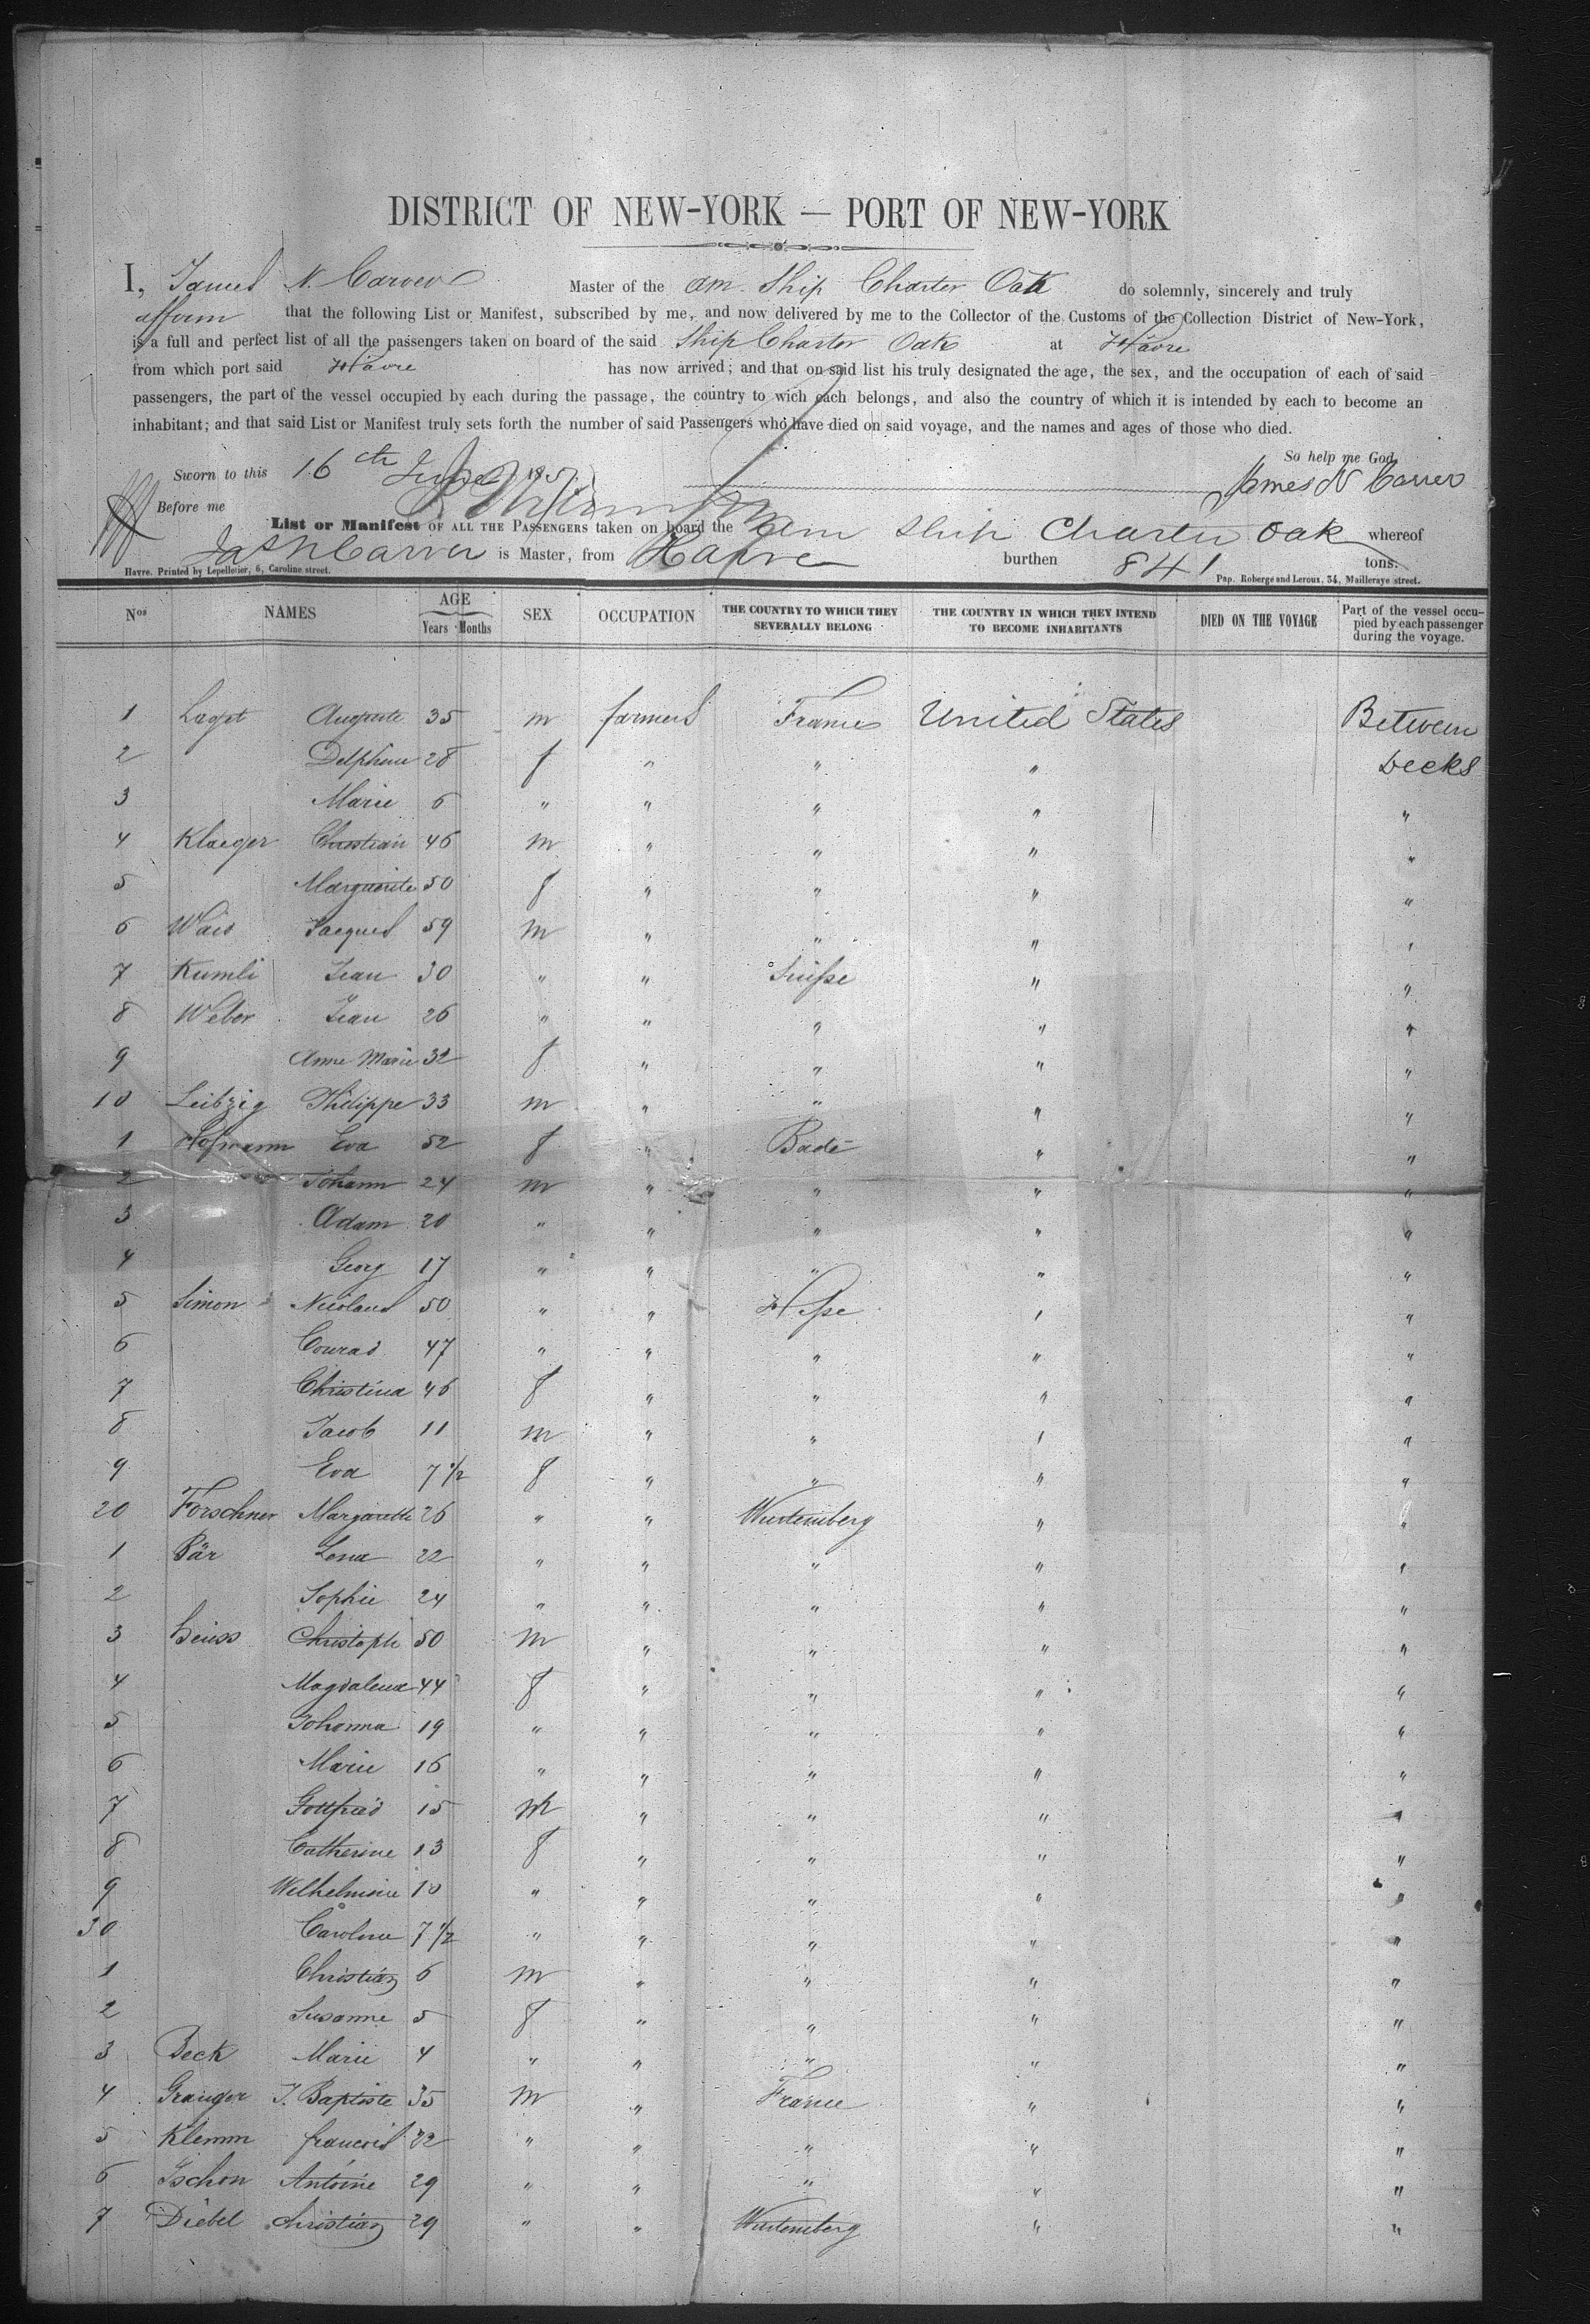 DISTRICT OF NEW-YORK — PORT OF NEW-YORK
I, James N. Carver Master of the Am. Ship Charter Oak do solemnly, sincerely and truly
affirm that the following List or Manifest, subscribed by me, and now delivered by me to the Collector of the Customs of the Collection District of New-York,
is a full and perfect list of all the passengers taken on board of the said Ship Charter Oak at Havre
from which port said Havre has now arrived; and that on said list his truly designated the age, the sex, and the occupation of each of said
passengers, the part of the vessel occupied by each during the passage, the country to wich each belongs, and also the country of which it is intended by each to become an
inhabitant; and that said List or Manifest truly sets forth the number of said Passengers who have died on said voyage, and the names and ages of those who died.
So help me God
Sworn to this 16th June 185 James N Carver
Before me
List or Manifest OF ALL THE PASSENGERS taken on board the Am Ship Charter Oak whereof
Jas N Carver is Master, from Havre burthen 841 tons.
Havre. Printed by Lepelletier, 6, Caroline street. Pap. Roberge and Leroux, 34, Mailleraye street.
Nos NAMES AGE Years Months SEX OCCUPATION THE COUNTRY TO WHICH THEY SEVERALLY BELONG THE COUNTRY IN WHICH THEY INTEND TO BECOME INHABITANTS DIED ON THE VOYAGE Part of the vessel occupied by each passenger during the voyage.
1 Laget Auguste 35 m farmers France United States Between
2 Delphine 28 f " " " Decks
3 Marie 6 " " " " "
4 Klaeger Christian 46 m " " " "
5 Marguerite 50 f " " " "
6 Wais Jacques 59 m " " " "
7 Kumli Jean 30 " " Suisse " "
8 Weber Jean 26 " " " " "
9 Anne Marie 32 f " " " "
10 Leibzig Philippe 33 m " " " "
1 Hofmann Eva 52 f " Bade " "
2 Johann 24 m " " " "
3 Adam 20 " " " " "
4 Georg 17 " " " " "
5 Simon Nicolaus 50 " " Hesse " "
6 Conrad 47 " " " " "
7 Christina 46 f " " " "
8 Jacob 11 m " " " "
9 Eva 7 1/2 f " " " "
20 Forschner Margarethe 26 " " Wurtemberg " "
1 Bär Lena 22 " " " " "
2 Sophie 24 " " " " "
3 Heuss Christoph 50 m " " " "
4 Magdalena 44 f " " " "
5 Johanna 19 " " " " "
6 Marie 16 " " " " "
7 Gottfried 15 m " " " "
8 Catherine 13 f " " " "
9 Wilhelmine 10 " " " " "
30 Caroline 7 1/2 " " " " "
1 Christian 6 m " " " "
2 Susanne 5 f " " " "
3 Beck Marie 4 " " " " "
4 Granger J. Baptiste 35 m " France " "
5 Klemm francois 22 " " " " "
6 Tschon Antoine 29 " " " " "
7 Diebel Christian 29 " " Wurtemberg " "